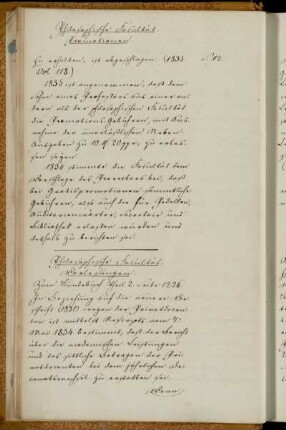 Philosophische Facultät
Promotionen.
zu erhalten, ist abgeschlagen (1835
Vol 118.)
1835 ist angenommen, daß dem
Sohn eines Professors aus einer an
dern als der philosophischen Facultät
die Promotions Gebühren, mit Aus
nahme der unerläßlichen Neben
Ausgaben zu 10 20 gr. zu erlas
sen seyen
1836 stimmte die Facultät dem
Vorschlage des Prorectors bei, daß
bei Gratispromotionen sämmtliche
Gebühren, also auch die für Pedellen,
Auditorienwärter, Secretair und
Bibliothek erlassen würden und
deshalb zu berichten sei
Philosophische Facultät
Vorlesungen.
Zum Handbuch Theil 2 Seite 1226
In Beziehung auf die neuere Vor
schrift (1831) wegen der Privatdocen
ten ist mittelst Rescripts vom 7
Mai 1834 bestimmt, daß der Bericht
über die academischen Leistungen
und das sittliche Betragen der Pri
vatdocenten bei dem jährlichen De
canatswechsel zu erstatten sei